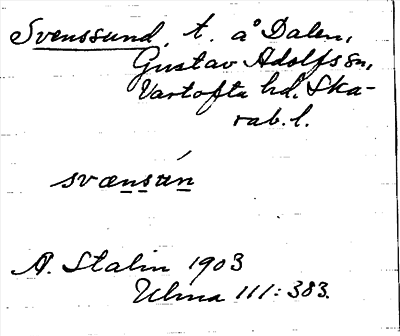 Svenssund, t. å Dalen,
Gustav Adolfs sn,
Vartofta hd, Ska-
rab. l.
svænsún
A. Stalin 1903
Ulma 111:383.